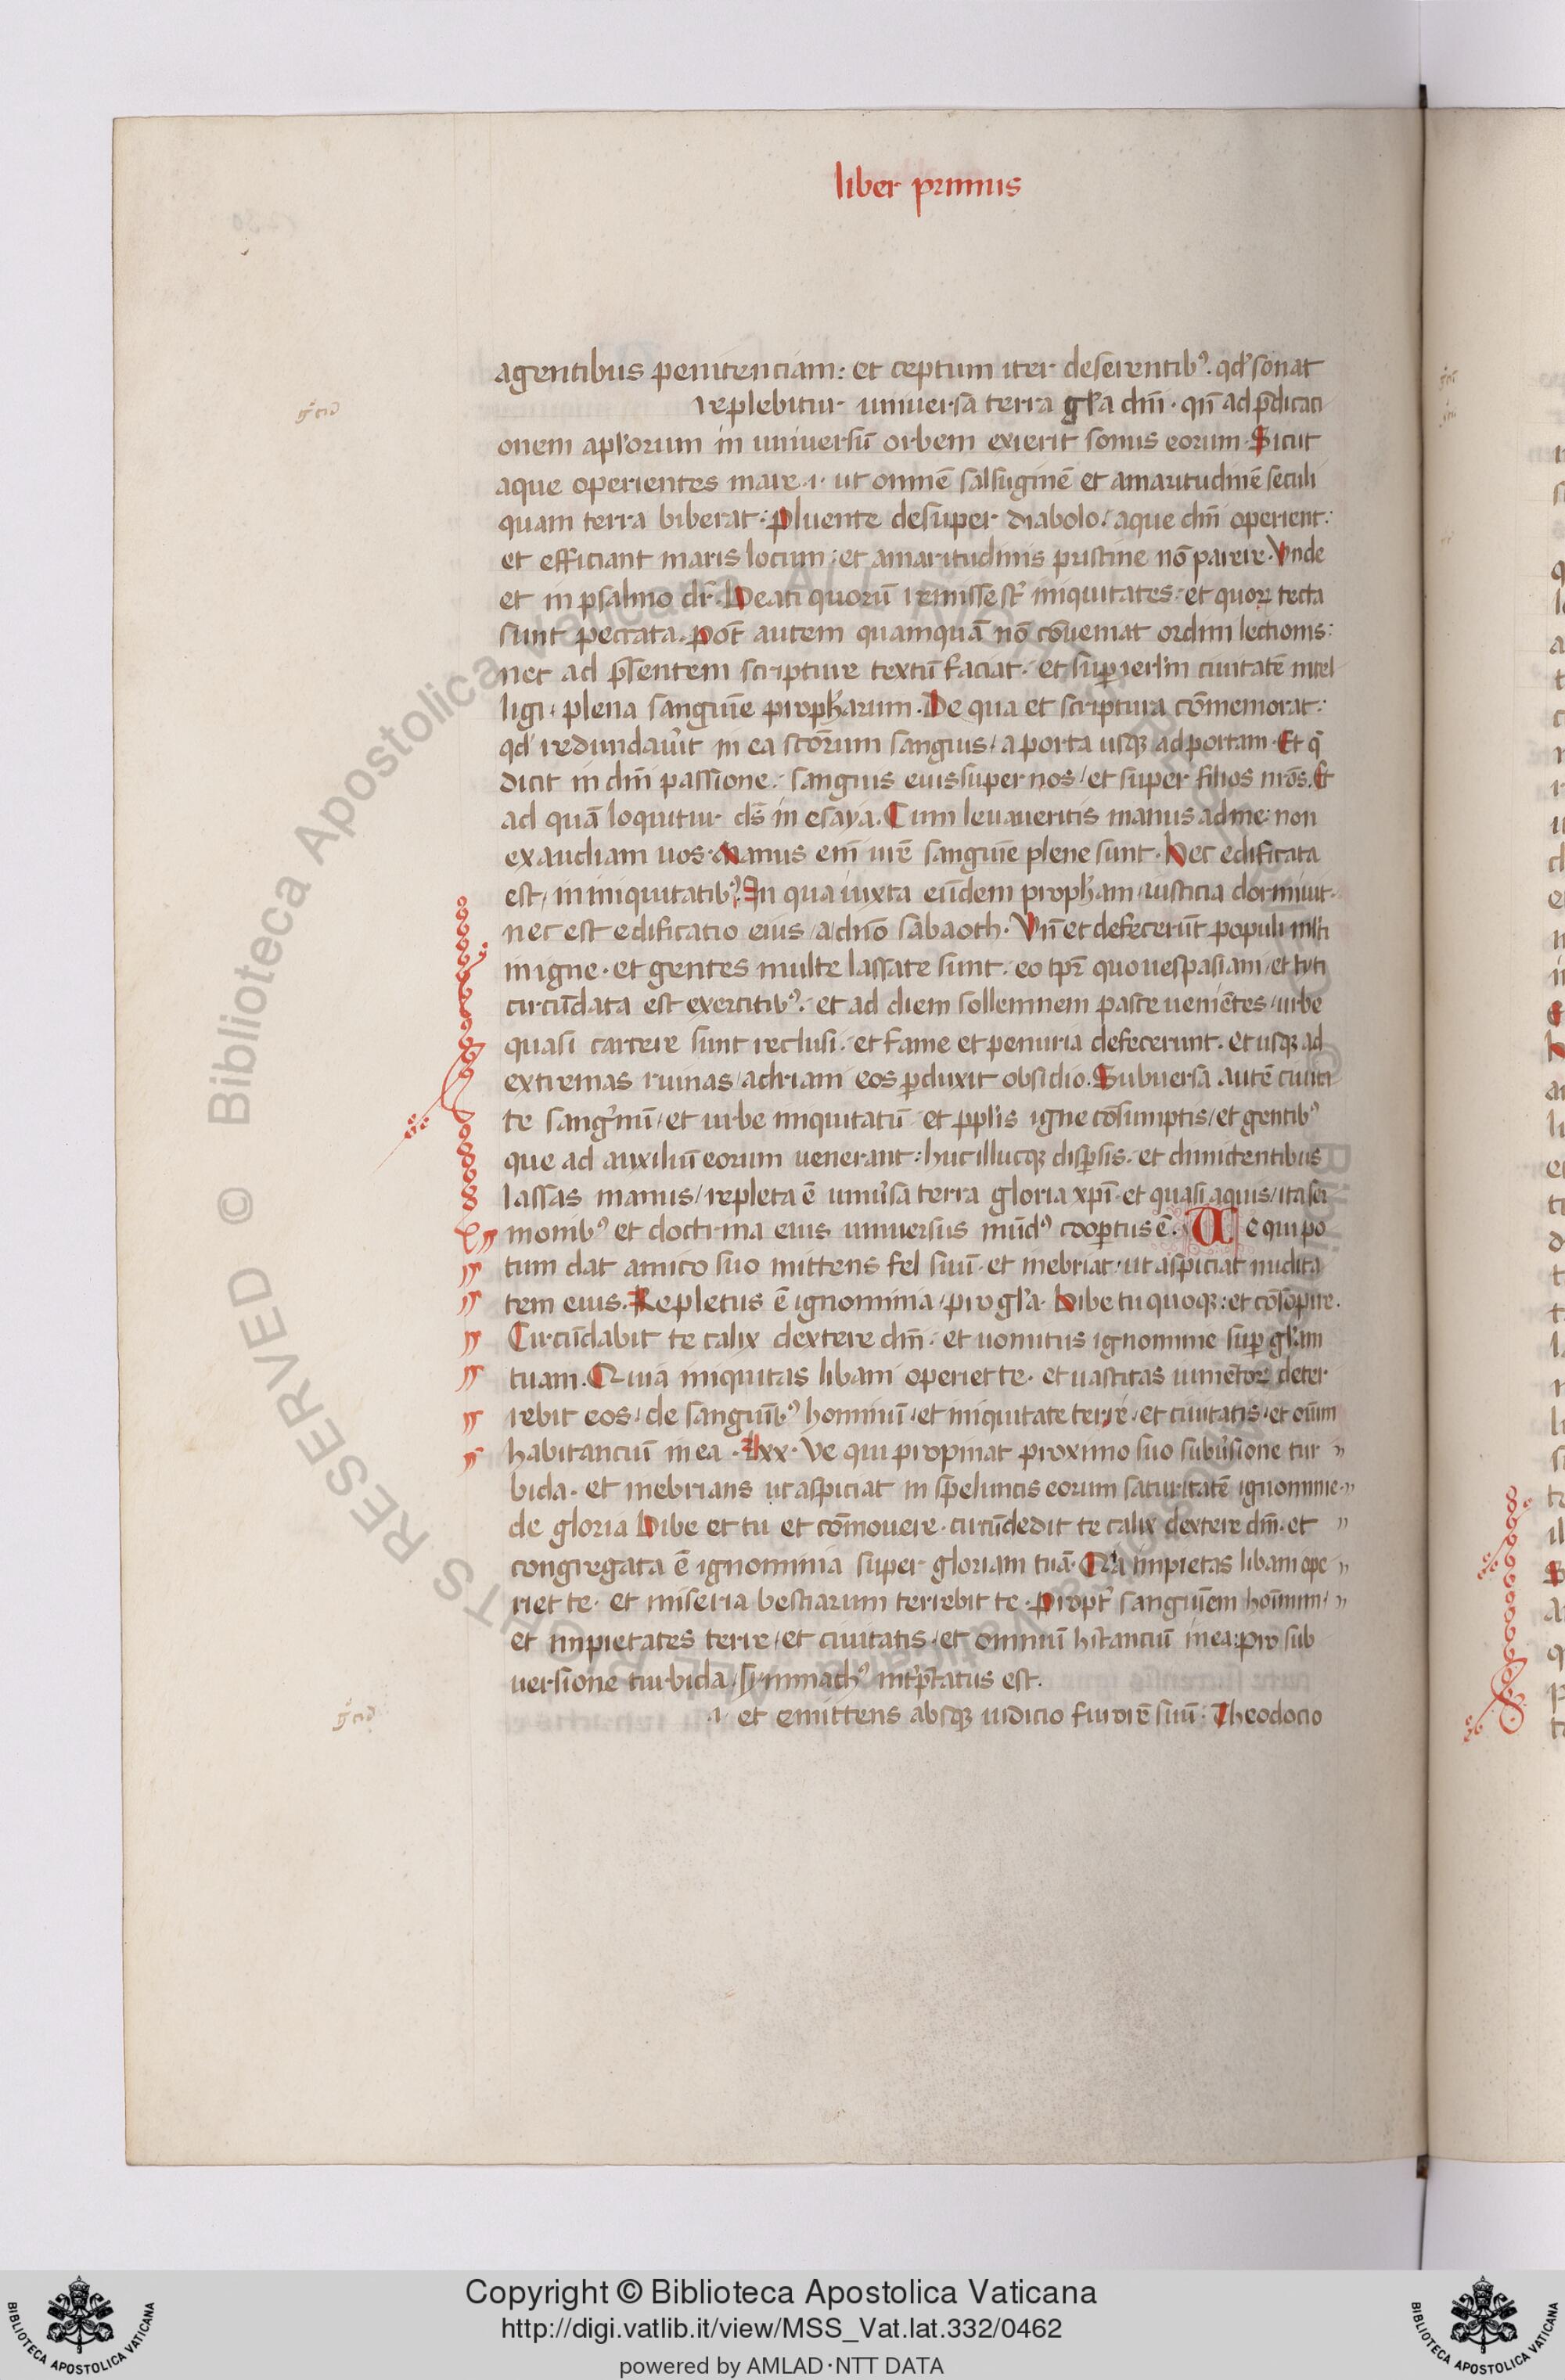 liber primus
agentibus penitenciam: et ceptum iter deserentibꝰ. qđ sonat
grecū
replebitur uniuersa terra gl̓a dn̄i. qn̄ ad p̄dicati
onem apl̓orum in uniuersū orbem exierit sonus eorum. Sicut
aque operientes mare .i. ut omnē salsuginē et amaritudinē seculi
quam terra biberat: Pluente desuper diabolo / aque dn̄i operient:
et efficiant maris locum: et amaritudinis pristine nō parere. Vnde
et in psalmo dr̄. Beati quorū remisse st̄ iniquitates: et quoꝝ tecta
sunt peccata. Pot̄ autem quamquā nō cōueniat ordini lectionis:
nec ad p̄sentem scripture textū faciat. et suꝑ ierl̓m ciuitatē intel
ligi / plena sanguīe proph̄arum. De qua et scriptura cōmemorat:
qđ redundau̓it in ea sc̄torum sanguis / a porta usqꝫ ad portam. Et q̄
dicit in dn̄i passione: sanguis eius super nos / et super filios nr̄os. Et
ad quā loquitur ds̄ in esaya. Cum leuaueritis manus ad me: non
exaudiam uos. Manus em̄ ur̄e sanguīe plene sunt. Hec edificata
est / in iniquitatibꝰ. In qua iuxta eūdem proph̄am / iusticia dormiuit.
nec est edificatio eius / a dn̄o sabaoth. Vn̄ et defecerūt populi ml̓ti
in igne. et gentes multe lassate sunt. eo tꝑe quo uespasiani / et tyti
circūdata est exercitibꝰ. et ad diem sollemnem pasce ueniētes / urbe
quasi carcere sunt reclusi. et fame et penuria defecerunt. et usqꝫ ad
extremas ruinas / adriani eos ꝑduxit obsidio. Subuersa autē ciuita
te sang̓nū / et urbe iniquitatū et ppl̓is igne cōsumptis / et gentibꝰ
que ad auxiliū eorum uenerant: huc illucqꝫ disꝑsis. et dimictentibus
lassas manus / repleta ē uniu̓sa terra gloria xp̄i. et quasi aquis / ita ser
monibꝰ et doctrina eius uniuersus mūdꝰ cooꝑtus ē. Ve qui po
tum dat amico suo mittens fel suū. et inebriat: ut aspiciat nudita
tem eius. Repletus ē ignominia / pro gl̓a. Bibe tu quoqꝫ: et cōsōpire.
Circūdabit te calix dextere dn̄i. et uomitus ignominie suꝑ gl̓am
tuam. Quia iniquitas libani operiet te. et uastitas iumētoꝝ deter
rebit eos / de sanguinibꝰ hominū / et iniquitate terre / et ciuitatis / et oīum
habitanciū in ea. Lxx. Ve qui propinat proximo suo subu̓sione tur
bida. et inebrians ut aspiciat in speluncis eorum saturitatē ignominie.
de gloria Bibe et tu et cōmouere. circūdedit te calix dextere dn̄i. et
congregata ē ignominia super gloriam tuā. Qͥa impietas libani ope
riet te. et miseria bestiarum terrebit te. Propt̓ sanguīem hoīnum /
et impietates terre / et ciuitatis / et omniū hītanciū in ea: pro sub
uersione turbida / symmachꝰ int̓p̄tatus est.
grecū
.i. et emittens absqꝫ iudicio furorē suū: Theodocio
Copyright © Biblioteca Apostolica Vaticana
http://digi.vatlib.it/view/MSS_Vat.lat.332/0462
powered by AMLAD·NTT DATA
BIBLIOTECA APOSTOLICA VATICANA
BIBLIOTECA APOSTOLICA VATICANA